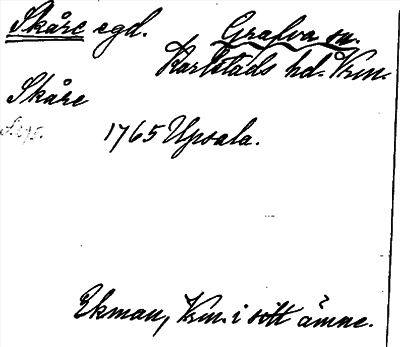 Skåre egd. Grafva sn.
Karlstads hd. Vrm.
Skåre
1765 Upsala.
Ekman, Vrm. i sitt ämne.